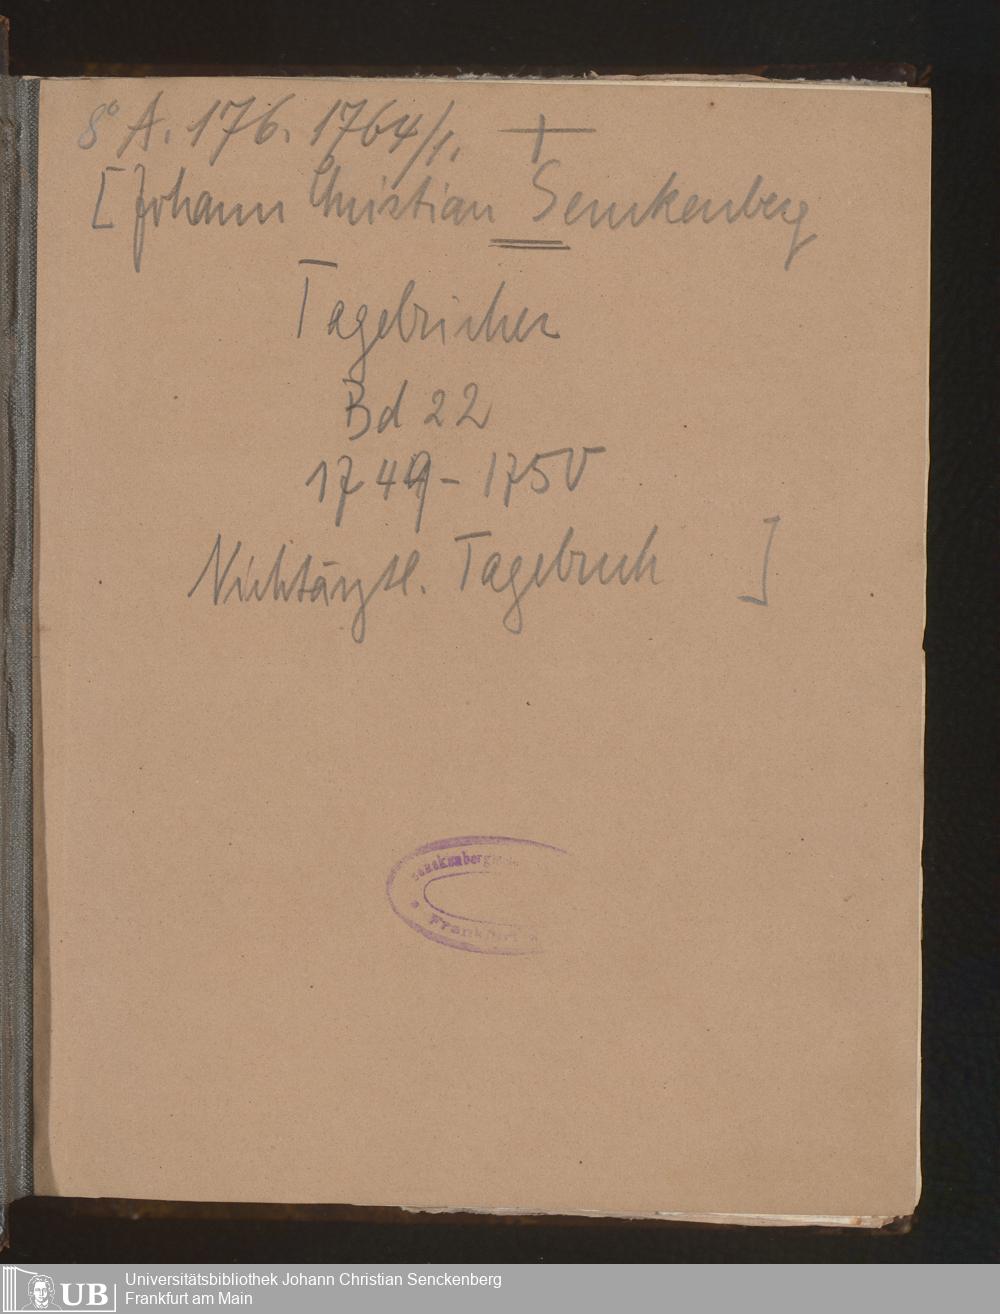 8° A. 176. 1764/1. +
[Johann Christian Senckenberg
Tagebücher
Bd 22
1749-1750
Nichtärztl. Tagebuch ]
Senckenberg
Frankfurt
UB
Universitätsbibliothek Johann Christian Senckenberg
Frankfurt am Main